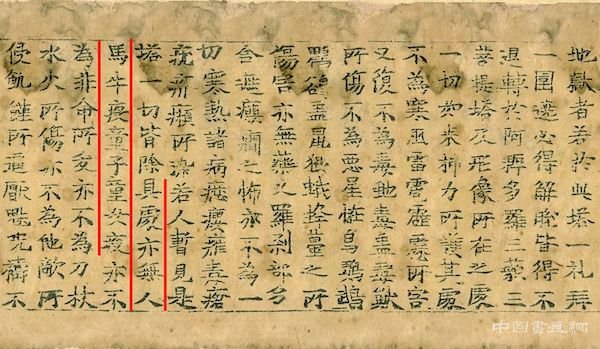 地獄者若於此塔一礼拜
一圍遶必得解脫皆得不
退轉於阿耨多羅三藐三
菩提塔及形像所在之處
一切如来神力所護其處
不為寒風雷雹霹靂所害
又復不為毒虵毒蟲毒獸
所傷不為惡星怪鳥鸚鵡
鸜鵒蟲鼠之所
傷害亦無藥叉羅剎部多
舍遮癲癇之怖亦不為一
切寒熱諸病癧瘻癰毒瘡
癬疥癩所染若人暫見是
塔一切皆除其處亦無人
馬牛疫童子童女疫亦不
為非命所夭亦不為刀杖
水火所傷亦不為他敵所
侵飢饉所逼厭魅咒禱不
中国書畫網